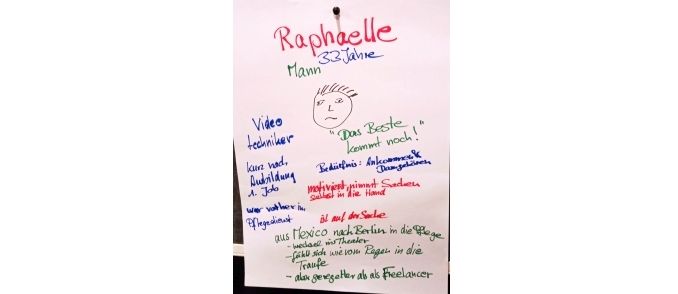 Raphaelle
33 Jahre
Mann
Video
techniker
"Das Beste
kommt noch!"
kurz nach
Ausbildung
1. Job
Bedürfnis: Ankommen &
Dazugehören
motiviert, nimmt Sachen
selbst in die Hand
war vorher im
Pflegedienst
ist auf der Suche
aus Mexico nach Berlin in die Pflege
- wechsel ins Theater
- fühlt sich wie vom Regen in die
Traufe
- aber geregelter als als Freelancer